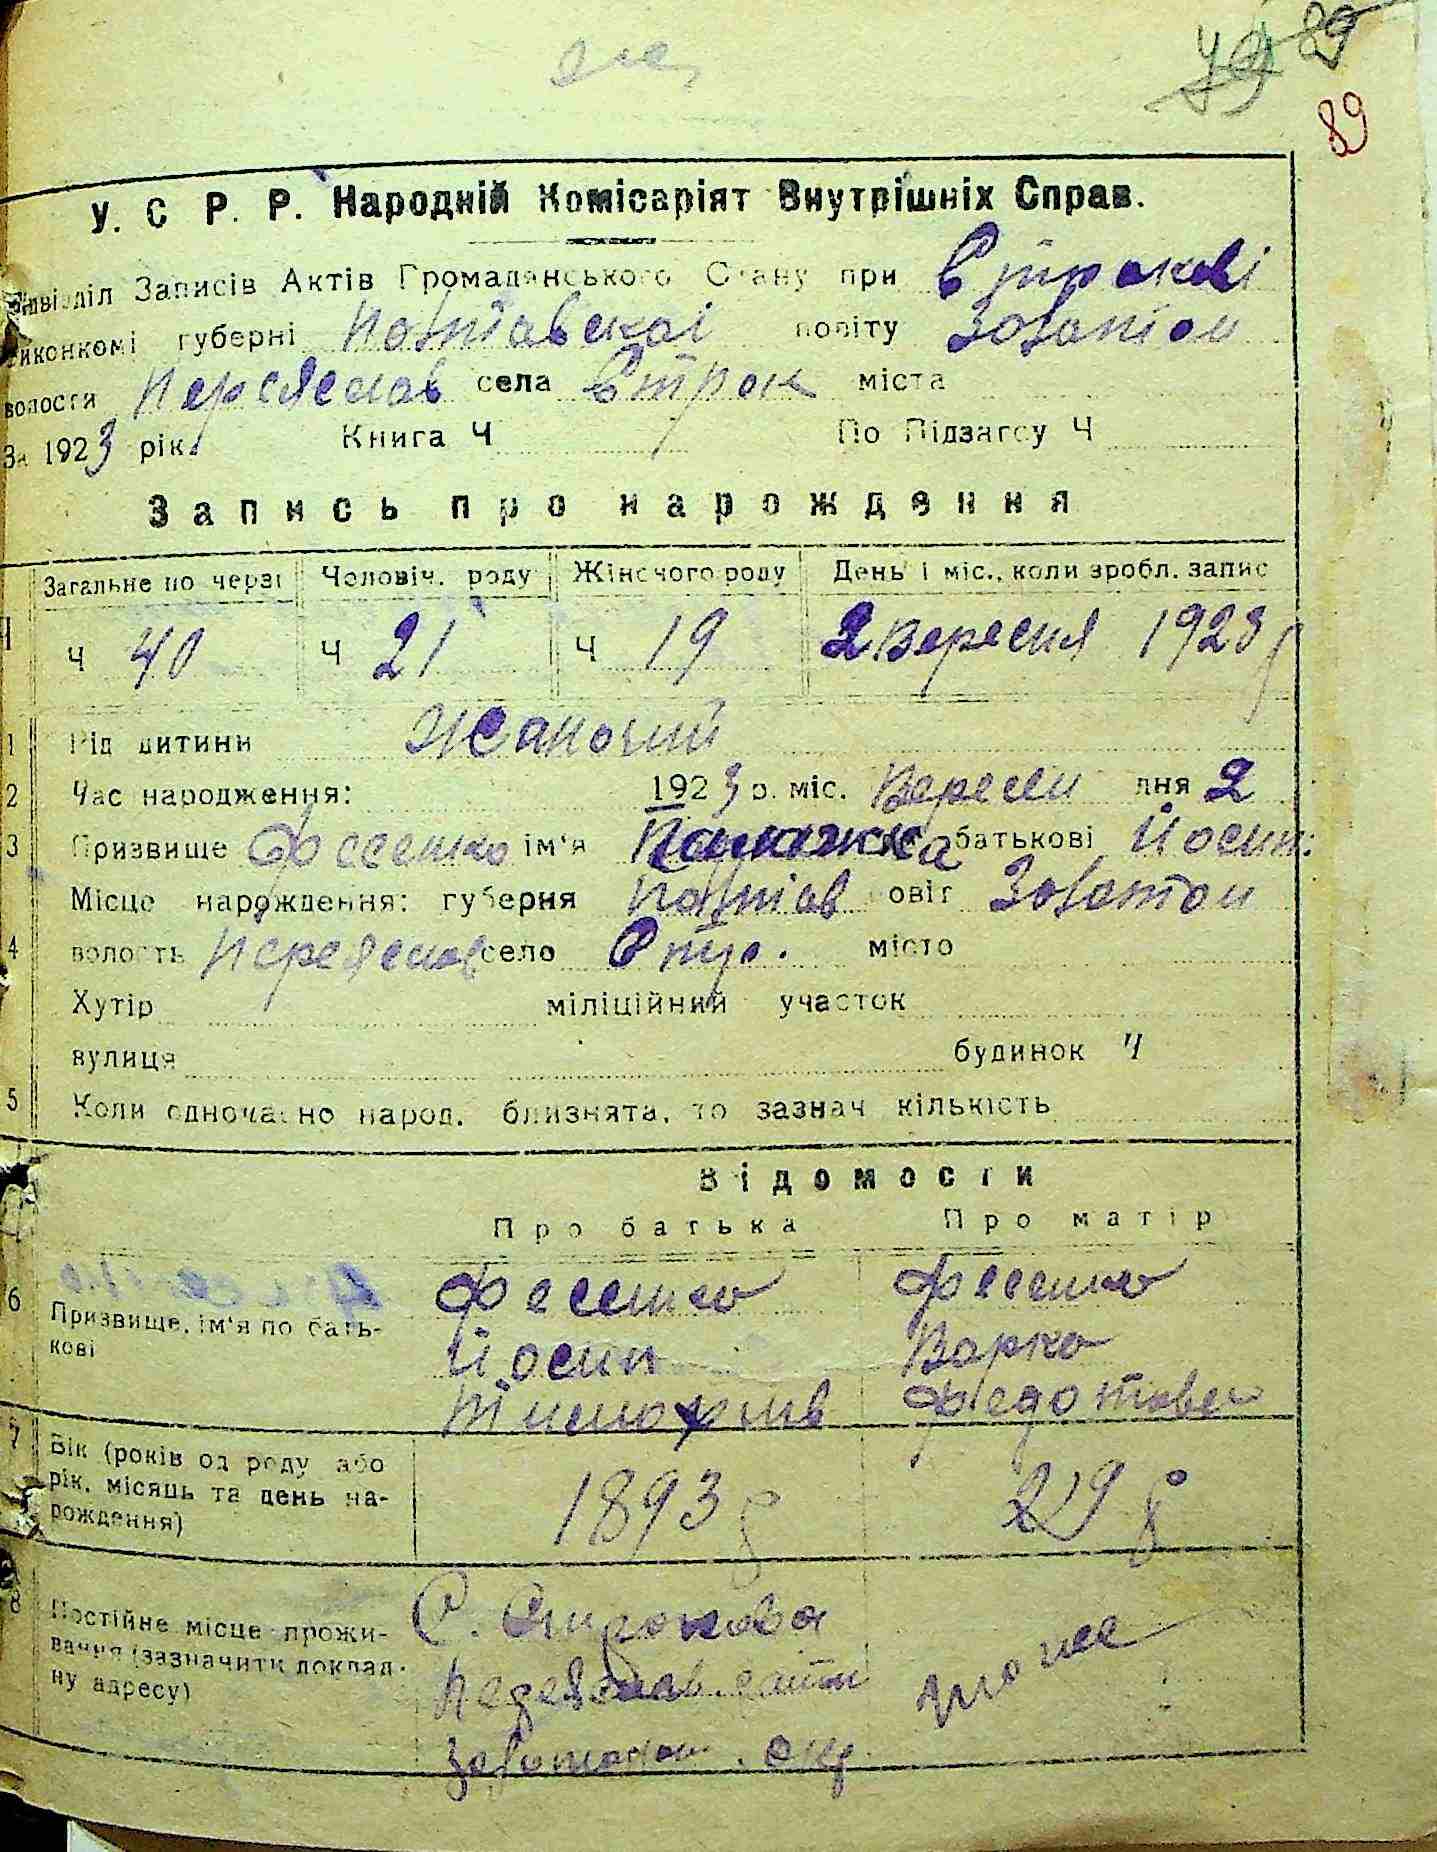 89
89
У. С Р. Р. Народній Комісаріят Внутрішніх Справ.
Підвідділ Записів Актів Громадянського Стану при Строкові
виконкомі губерні Полтавскої повіту Золотон
волости Переяслав села Строк міста
За 1923 рік. Книга Ч По Підзагсу Ч
Запись про нарождення
Загальне по черзі Чоловіч. роду Жіночого роду День і міс., коли зробл. запис
Ч 40 Ч 21 Ч 19 2 Вересня 1923 р
1 Рід дитини Жаночий
2 Час народження: 1923 р. міс. Вересня дня 2
3 Призвище Фесенко ім'я батькові Йосип.
4 Місце нарождення: губерня Полтав овіт Золотон
волость Переяслав село Стр. місто
Хутір міліційний участок
вулиця будинок Ч
5 Коли одночасно народ. близнята, то зазнач кількість
Відомости
Про батька Про матір
6 Призвище, ім'я по батькові Фесенко Фесенко
Йосип Варка
Тимофіїв Федотовна
7 Вік (років од роду або рік, місяць та день нарождення) 1893 р 29 р
8 Постійне місце проживання (зазначити докладну адресу) С. Строкова тоже
Переяслав. райони
Золотонош. окр